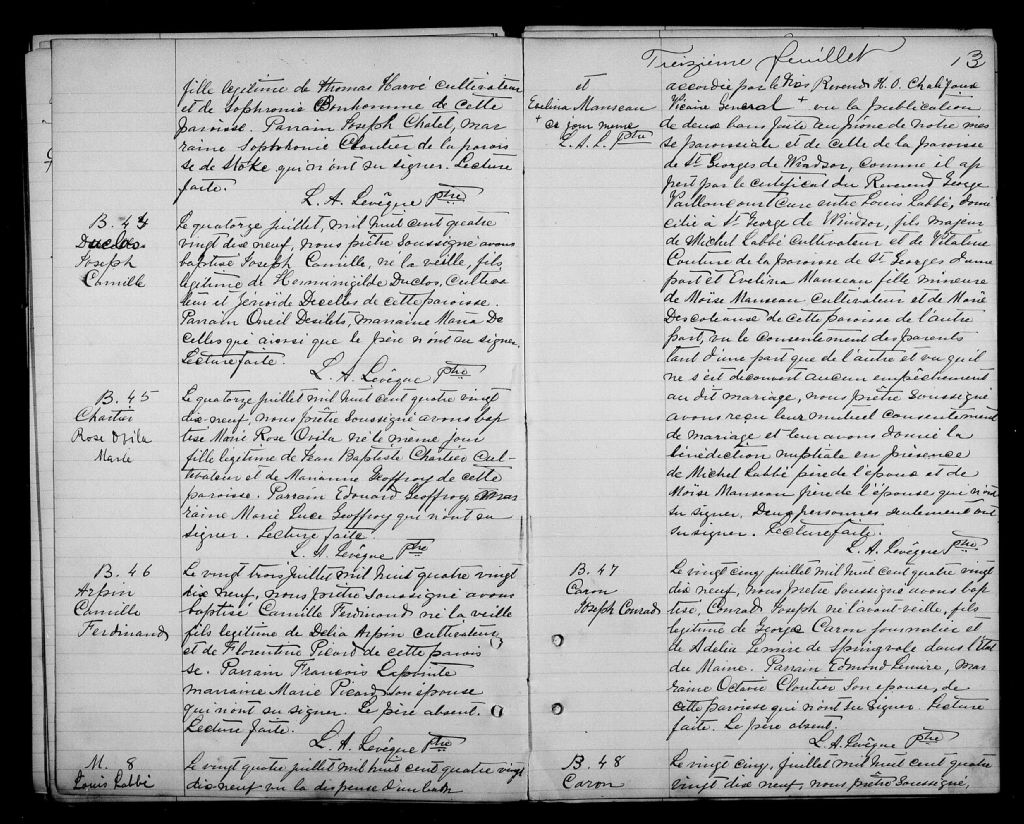 fille legitime de Thomas Harvé cultivateur
et de Sophronie Bonhomme de cette
paroisse. Parrain Joseph Chatel, mar
raine Sophronie Cloutier de la parois
se de Stoke qui n'ont su signer. Lecture
faite.
L. A. Levêque Ptre
B. 44
Duclos
Joseph
Camille
Le quatorze juillet, mil huit cent quatre
vingt dix neuf, nous prêtre soussigné avons
baptisé Joseph Camille, ne la veille, fils
legitime de Hermenigilde Duclos, cultiva
teur et Décelles de cette paroisse.
Parrain Oneil Desilets, marraine Maria De
celles qui ainsi que le père n'ont su signer.
Lecture faite
L. A. Levêque Ptre
B. 45
Chartier
Rose Ozila
Marie
Le quatorze juillet mil huit cent quatre vingt
dix-neuf, nous prêtre soussigné avons bap
tisé Marie Rose Ozila ne le même jour
fille legitime de Jean Baptiste Chartier cul-
tivateur et de Marianne Geoffroy de cette
paroisse. Parrain Edouard Geoffroy, mar
raine Marie Luce Geoffroy qui n'ont su
signer. Lecture faite.
L. A. Levêque Ptre
B. 46
Arpin
Camille
Ferdinand
Le vingt trois juillet mil huit quatre vingt
dix neuf, nous prêtre soussigné avons
baptisé Camille Ferdinand né la veille
fils legitime de Délia Arpin cultivateur
et de Florentine Picard de cette parois
se. Parrain Francois Lapointe
marraine Marie Picard son épouse
qui n'ont su signer. Le père absent.
Lecture faite.
L. A. Levêque Ptre
M. 8
Louis Labbé
Le vingt quatre juillet mil huit cent quatre vingt
dix-neuf vu la dispense d'un ban
Treizième feuillet 13
et
Evelina Manseau
+ ce jour meme
L. A. L. Ptre
accordée par le Très Reverend H. O. Chalifoux
Vicaire General + vu la publication
de deux bans faite au prône de notre mes
se paroissiale et de celle de la paroisse
de St Georges de Windsor, comme il ap
pert par le certificat du Reverend George
Vaillancourt Curé entre Louis Labbé, domi
cilié à St George de Windsor, fils majeur
de Michel Labbé cultivateur et de Vitaline
Couture de la paroisse de St Georges d'une
part et Evelina Manseau fille mineure
de Moïse Manseau cultivateur et de Marie
Descoteause de cette paroisse de l'autre
part, vu le consentement des parents
tant d'une part que de l'autre et vu qu'il
ne s'est decouvert aucun empêchement
au dit mariage, nous prêtre soussigné
avons reçu leur mutuel consentement
de mariage et leur avons donné la
bénédiction nuptiale en présence
de Michel Labbé père de l'époux et de
Moïse Manseau père de l'épouse qui n'ont
su signer. Deux personnes seulement ont
su signer. Lecture faite.
L. A. Levêque Ptre
B. 47
Caron
Joseph Conrad
Le vingt cinq juillet mil huit cent quatre vingt
dix neuf, nous prêtre soussigné avons bap
tisé, Conrad Joseph né l'avant-veille, fils
legitime de George Caron journalier et
de Adelia Lemire de Springvale dans l'Etat
du Maine. Parrain Edmond Lemire, mar
raine Octavie Cloutier son epouse, de
cette paroisse qui n'ont su signer. Lecture
faite. Le père absent.
L. A. Levêque Ptre
B. 48
Caron
Le vingt cinq, juillet mil huit cent quatre
vingt dix neuf, nous prêtre soussigné,